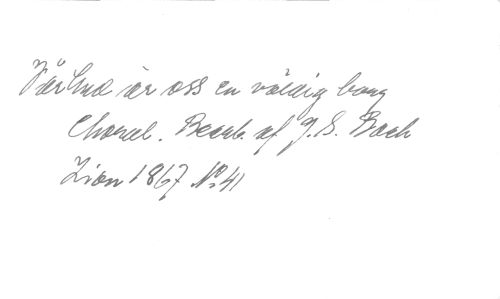 Vår Gud är oss en väldig borg
Choral. Bearb. af J. S. Bach
Zion 1867 No 41